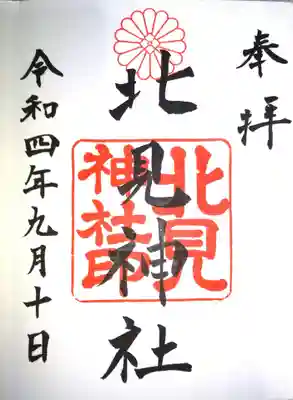 奉拝
北見神社
北見神社
令和四年九月十日